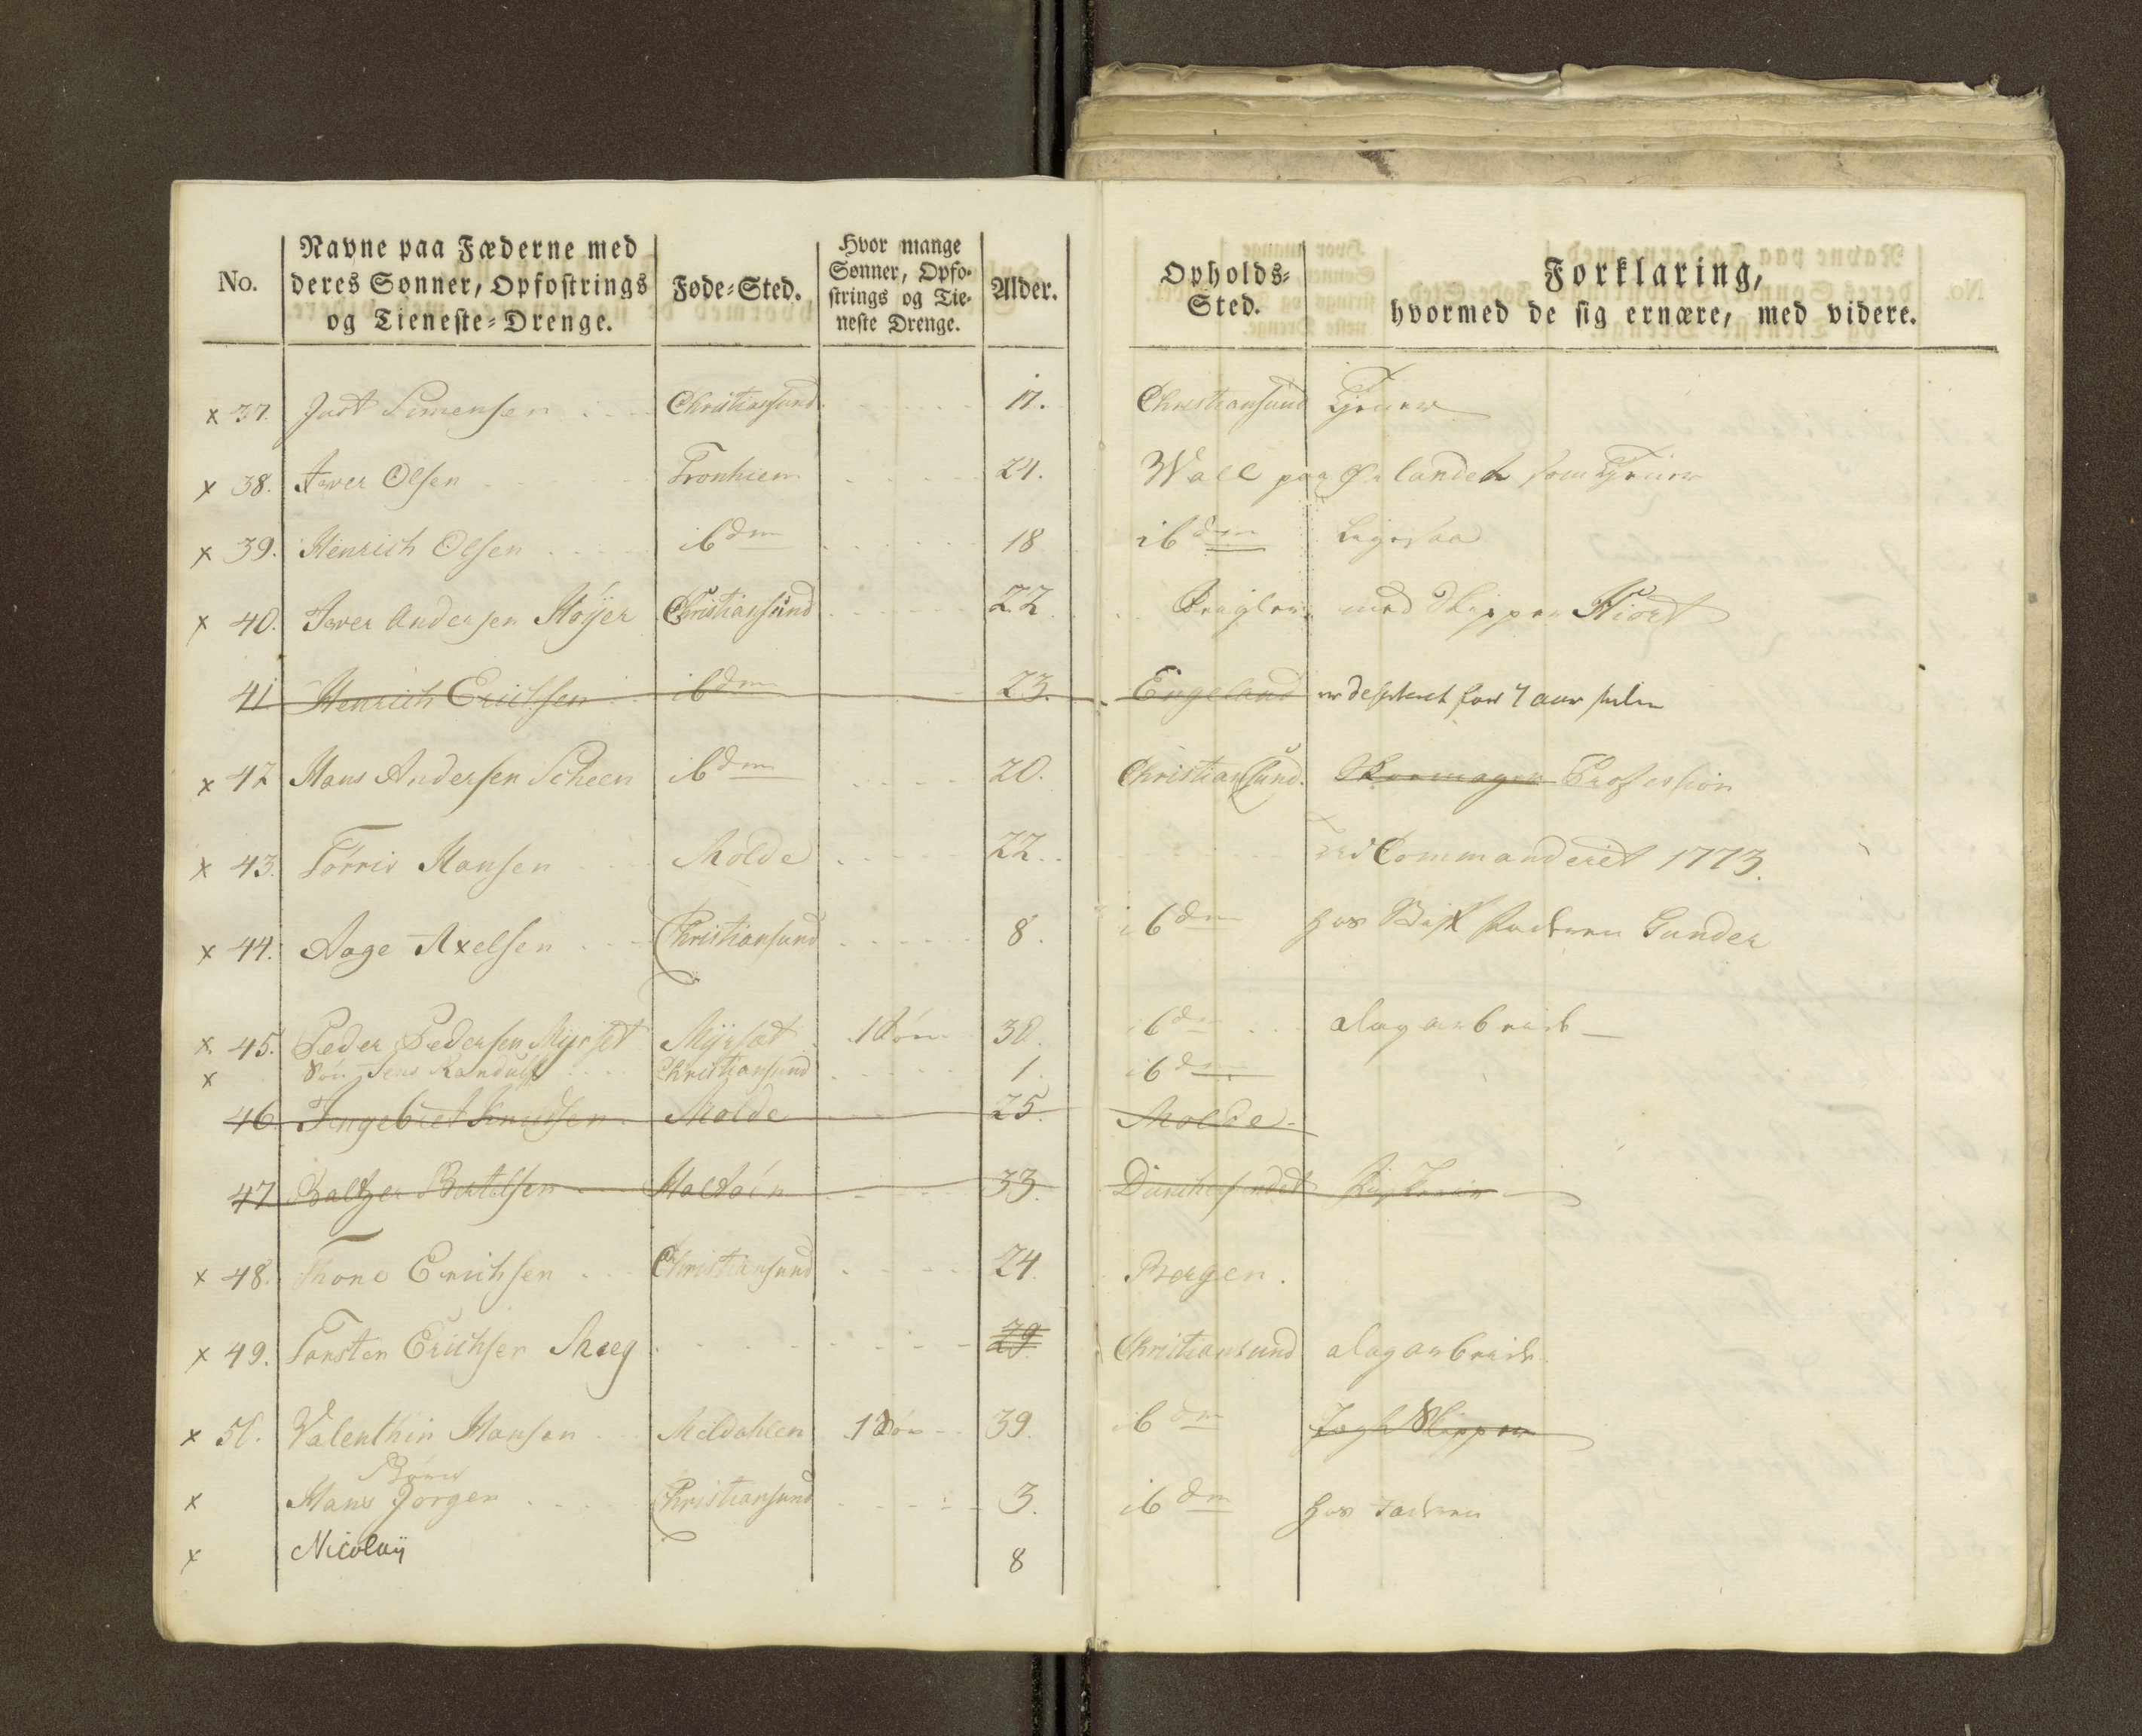 No. Navne paa Fæderne med deres Sønner, Opfostrings og Tieneste-Drenge. Føde-Sted. Hvor mange Sønner, Opfostrings og Tieneste Drenge. Alder. Opholds-Sted. Forklaring, hvormed de sig ernære, med videre.
x 37. Just Simensen Christiansund 17. Christiansund
x 38. Iver Olsen Tronhiem 24. Wall paa Ørlandet som
x 39. Henrich Olsen ibdm 18 ibdm Ligesaa
x 40. Iver Andersen Höyer Christiansund 22 med Skipper Hiort
41 Henrich Erichsen ibdm 23. Engeland er deserteret for 4 aar siden
x 42 Hans Andersen Scheen ibdm 20. Christiansund. Skoemager Profession
x 43. Torris Hansen Molde 22. Commanderet 1773.
x 44. Aage Axelsen Christiansund 8. ibdm hos Gunder
x 45. Peder Pedersen Myrset Myrset 1 Søn 30. ibdm dag arbeide
x Søn Jens Randulf Christiansund 1. ibdm
46 Ingebret Knudsen Molde 25. Molde
47 Baltzer Bertelsen 33.
x 48. Thone Erichsen Christiansund 24 Bergen.
x 49. Torsten Erichsen 29. Christiansund dag arbeide
x 50. Valenthin Hansen Meldahlen 1 Søn 39. ibdm Jagt Skipper
Børn
x Hans Jörgen Christiansund 3. ibdm hos Faderen
x Nicolay 8